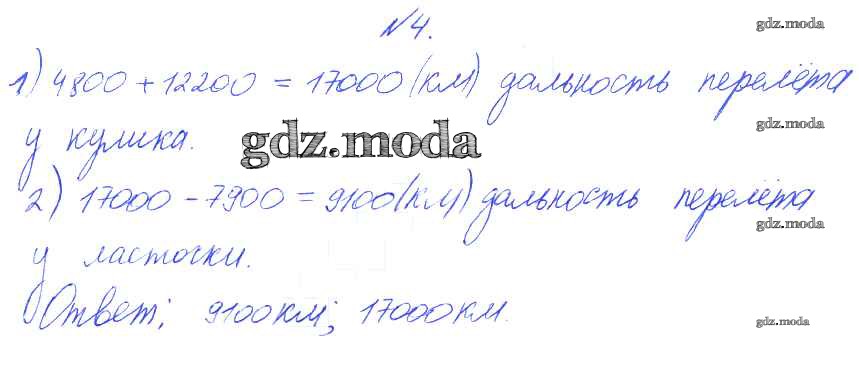 №4.
gdz.moda
1) 4800 + 12200 = 17000 (км) дальность перелёта
gdz.moda
у кулика.
gdz.moda
2) 17000 - 7900 = 9100 (км) дальность перелёта
gdz.moda
у ласточки.
Ответ: 9100 км; 17000 км.
gdz.moda